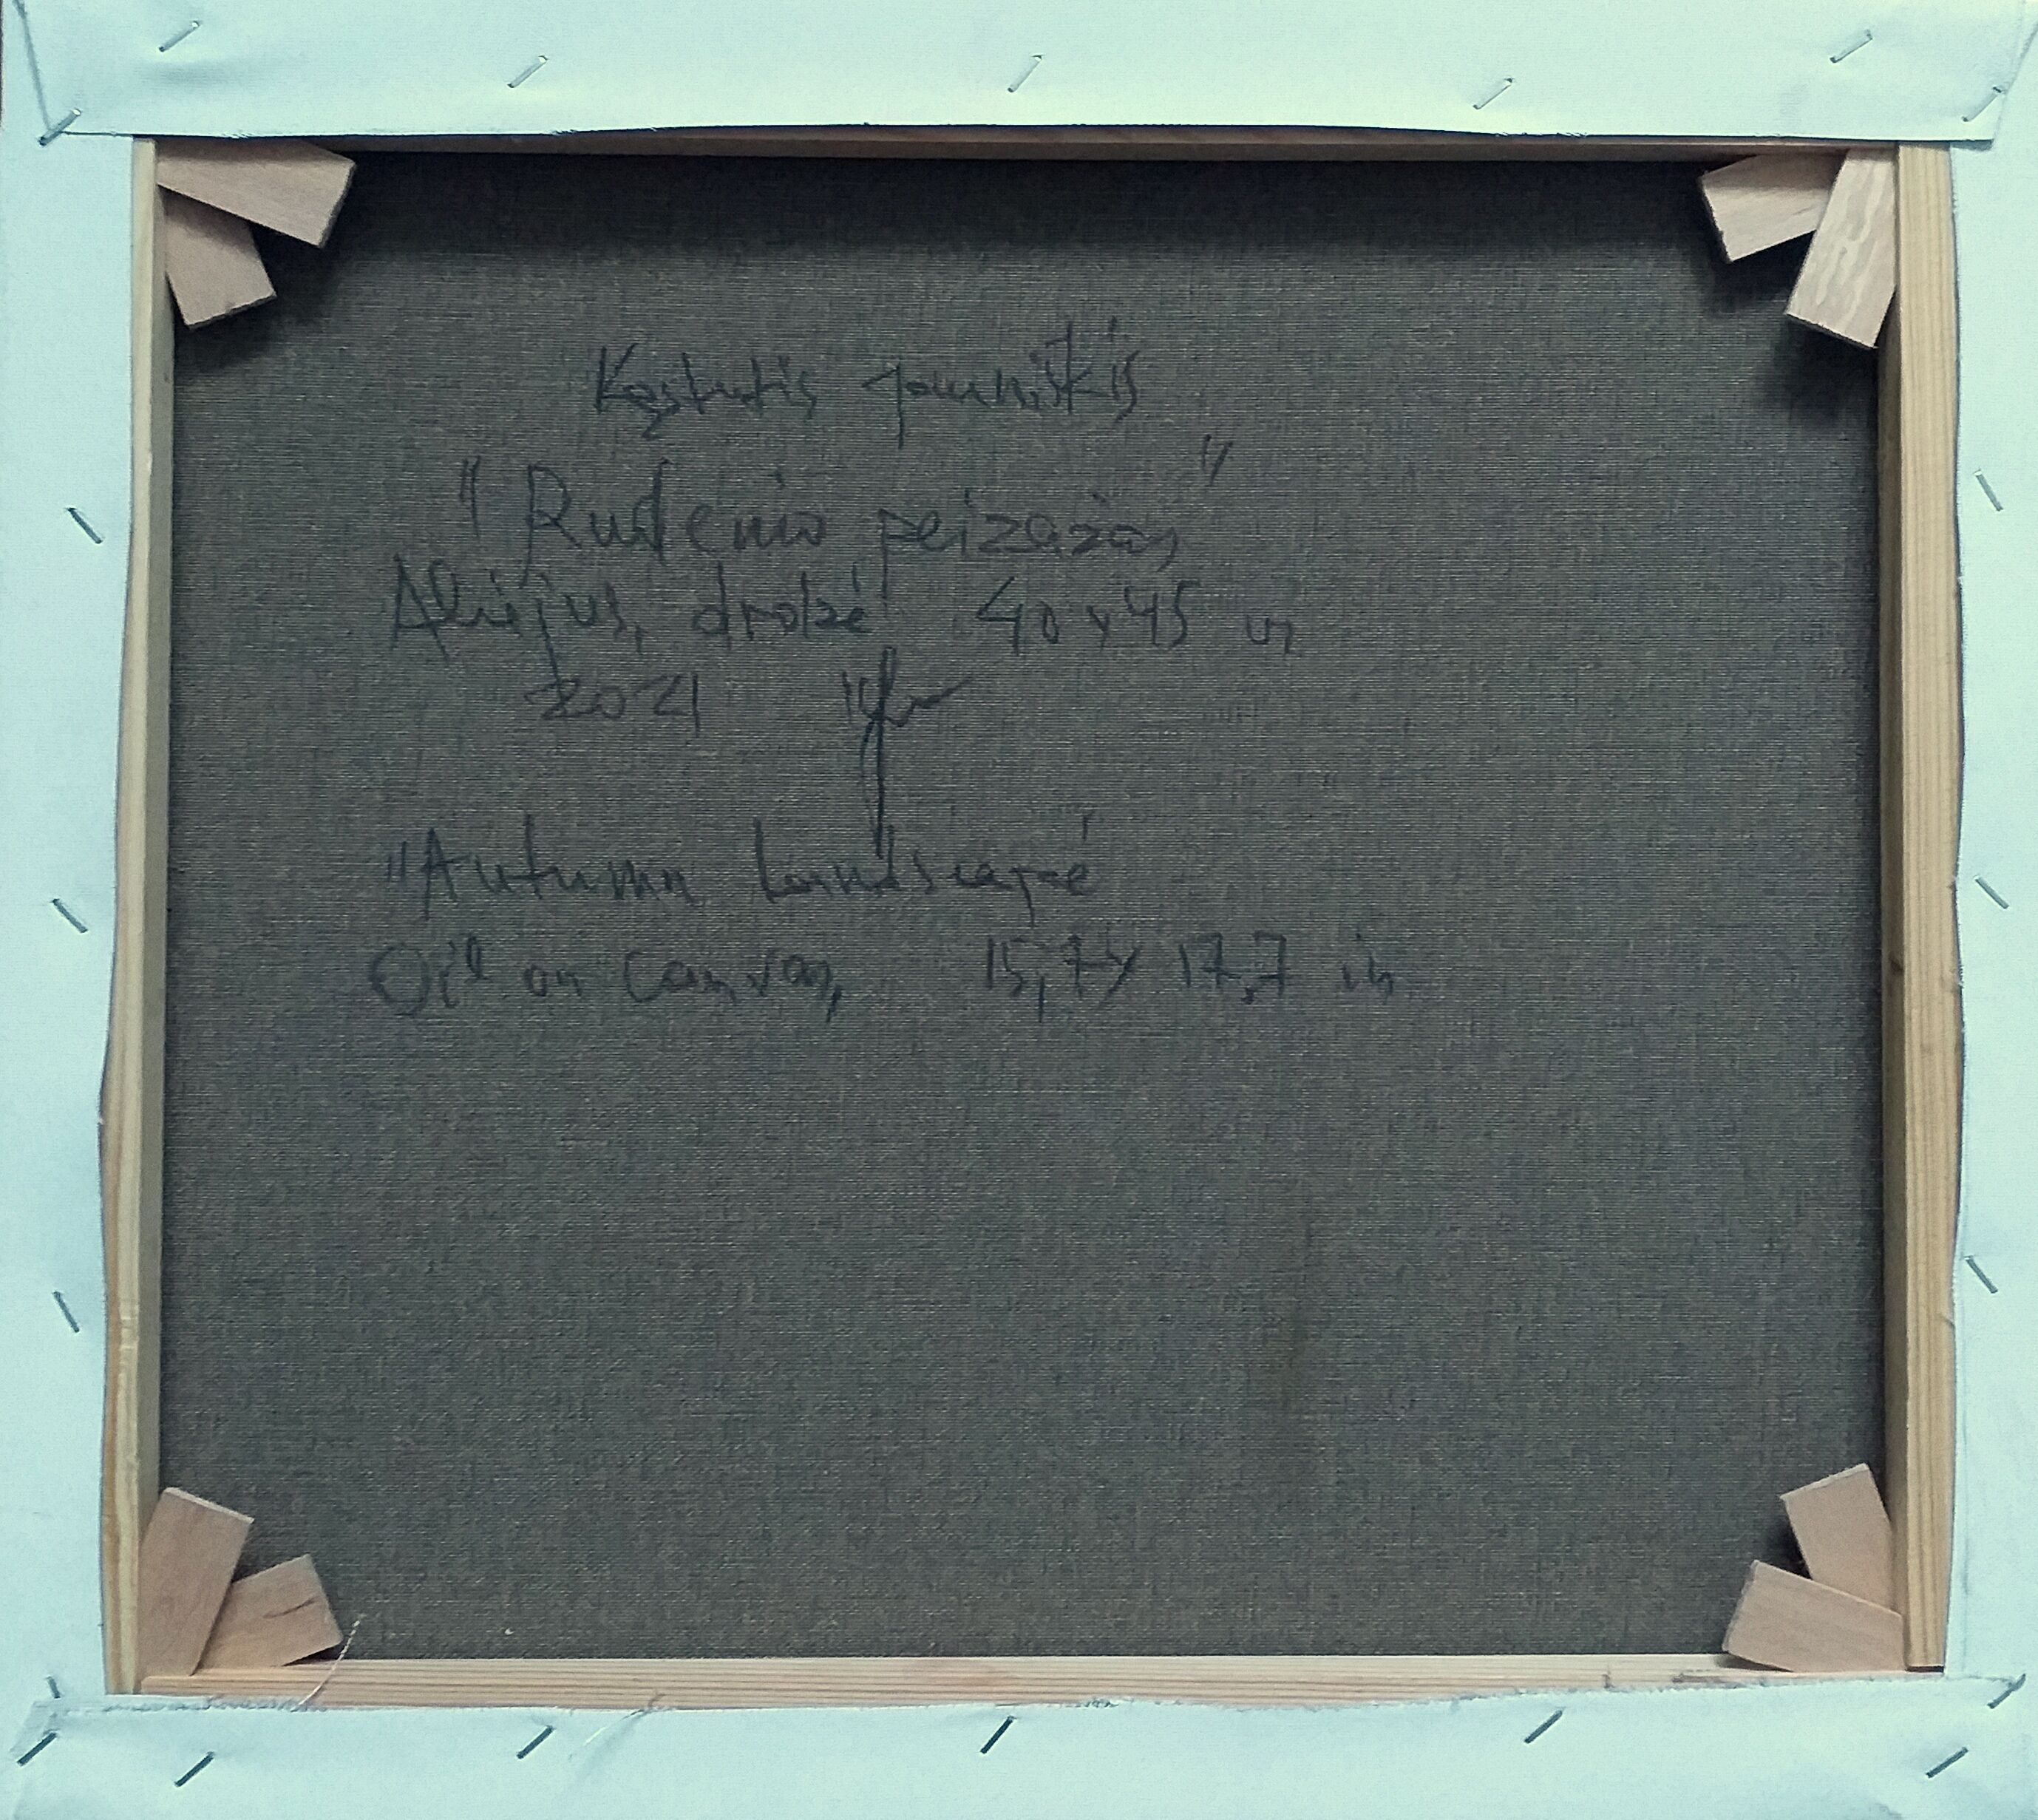 Kęstutis Jauniškis
"Rudenio peizažas"
Aliejus, drobė 40 x 45 cm
2021
"Autumn Landscape"
Oil on Canvas, 15,7 x 17,7 in